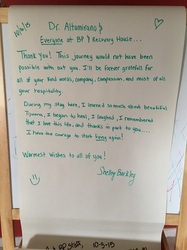 Dr. Altumirano &
Everyone at BP & Recovery House...
Thank You! This journey would not have been
possible with out you. I'll be forever grateful for
all of your kind words, company, compassion, and most of all
your hospitality.
During my stay here, I learned so much about beautiful
Tijuana, I began to heal, I laughed, I remembered
that I love this life, and thanks in part to you...
I have the courage to start living again!
Warmest Wishes to all of you!
Shelby
10-3-15